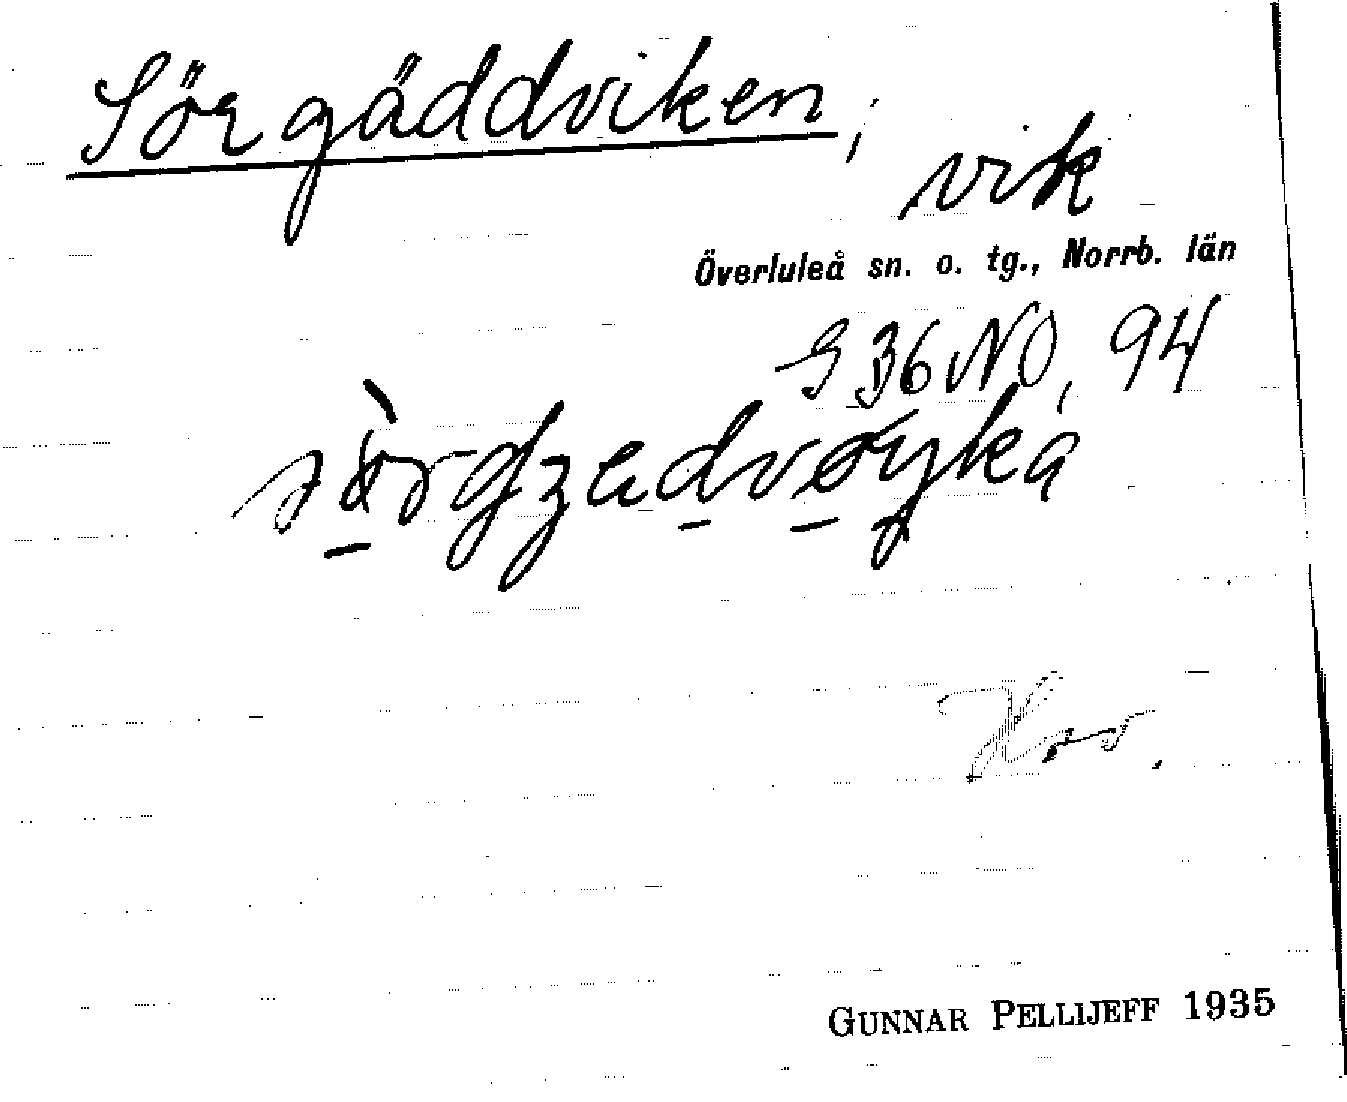 Sörgäddviken,
vik
Överluleå sn. o. tg., Norrb. län
G 36 NO, 94
GUNNAR PELLIJEFF 1935